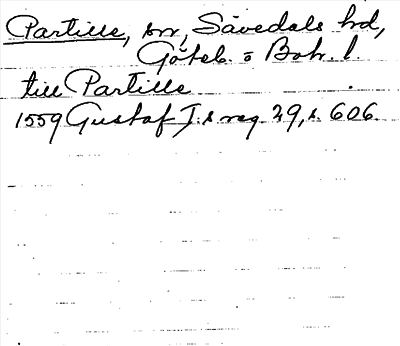 Partille, sn, Sävedals hd,
Göteb. o Boh. l.
till Partille
1559 Gustaf I:s reg 29, s. 606.